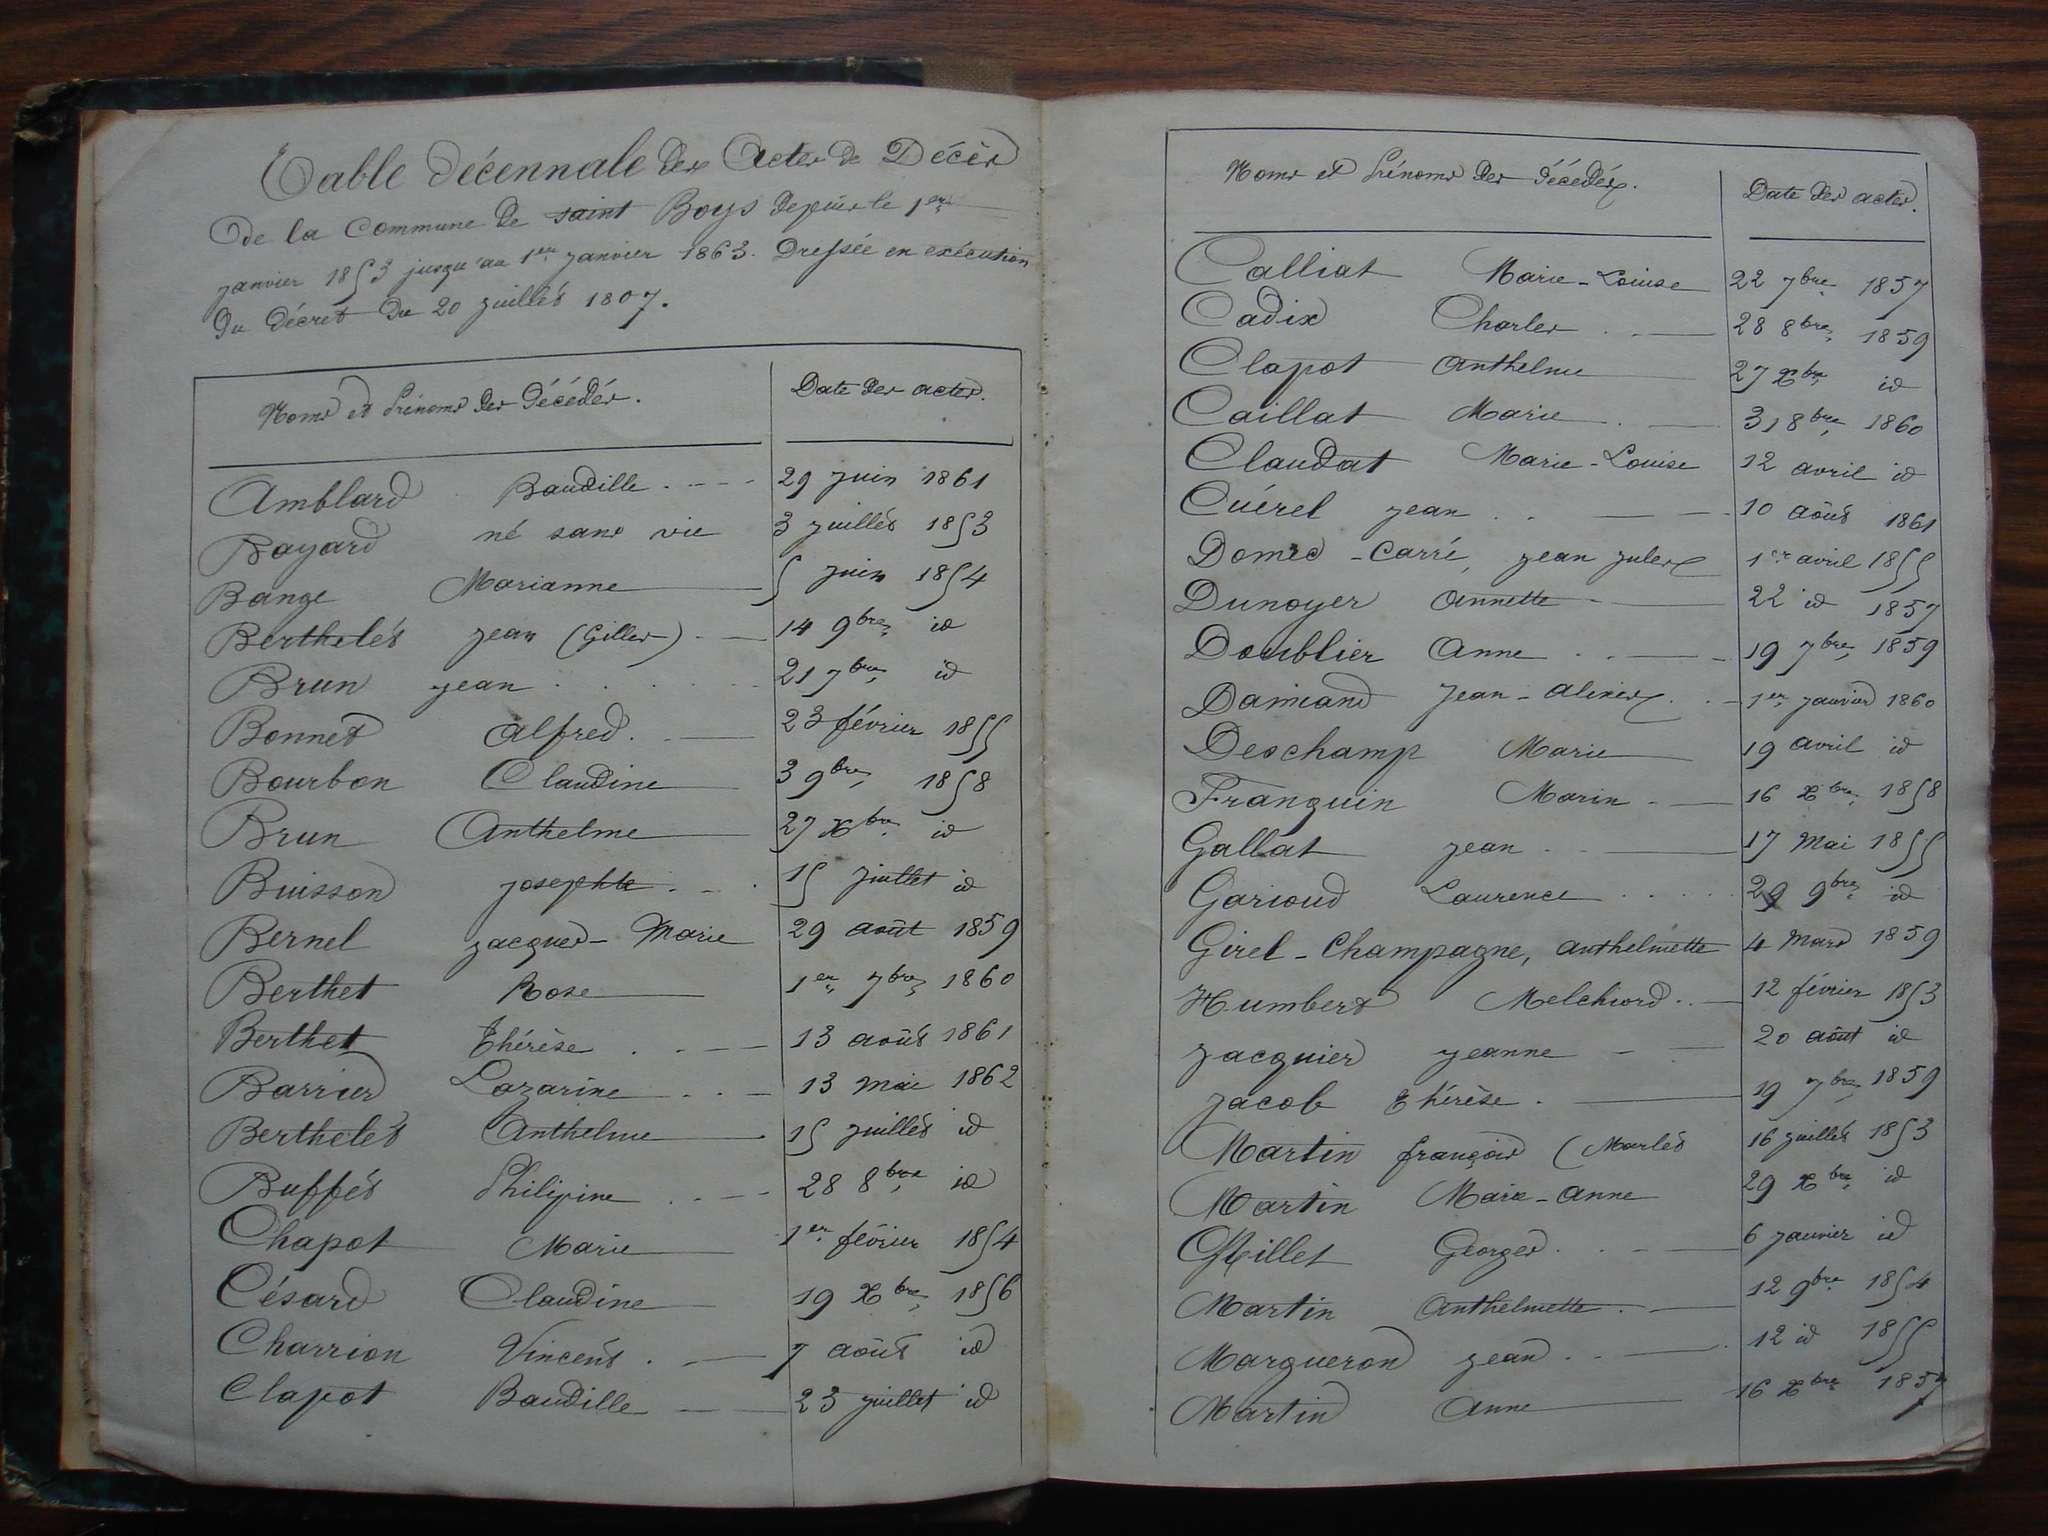 Table décennale des Actes de Décès
de la Commune de saint Boys depuis le 1er
janvier 1853 jusqu'au 1er janvier 1863. Dressée en exécution
du décret du 20 juillet 1807.
Noms et Prénoms des décédés. Date des actes.
Amblard Baudille 29 juin 1861
Bayard né sans vie 3 juillet 1853
Bange Marianne 5 juin 1854
Berthelet jean (Gilles) 14 9bre id
Brun jean 21 7bre id
Bonnet Alfred 23 février 1855
Bourbon Claudine 3 9bre 1858
Brun Anthelme 27 Xbre id
Buisson josephte 15 juillet id
Bernel jacques-Marie 29 août 1859
Berthet Rose 1er 7bre 1860
Berthet Thérèse 13 août 1861
Barrier Lazarine 13 Mai 1862
Berthelet Anthelme 15 juillet id
Buffét Philipine 28 8bre id
Chapot Marie 1er février 1854
Césard Claudine 19 Xbre 1856
Charrion Vincent 7 août id
Clapot Baudille 23 juillet id
Noms et Prénoms des décédés. Date des actes.
Calliat Marie-Louise 22 7bre 1857
Cadix Charles 28 8bre 1859
Clapot Anthelme 27 Xbre id
Caillat Marie 31 8bre 1860
Claudat Marie-Louise 12 avril id
Cuérel jean 10 août 1861
Domec-Carré, jean jules 1er avril 1855
Dunoyer Annette 22 id 1857
Doublier Anne 19 7bre 1859
Damiand Jean-Alexis 1er janvier 1860
Deschamp Marie 19 avril id
Franquin Marin 16 Xbre 1858
Gallat jean 17 Mai 1855
Garioud Laurence 29 9bre id
Girel-Champagne, Anthelmette 4 Mars 1859
Humbert Melchiord 12 février 1853
Jacquier jeanne 20 août id
Jacob Thérèse 19 7bre 1859
Martin françois (Marlet 16 juillet 1853
Martin Marie-Anne 29 Xbre id
Millet Georges 6 janvier id
Martin Anthelmette 12 9bre 1854
Margueron jean 12 id 1855
Martin Anne 16 Xbre 1857